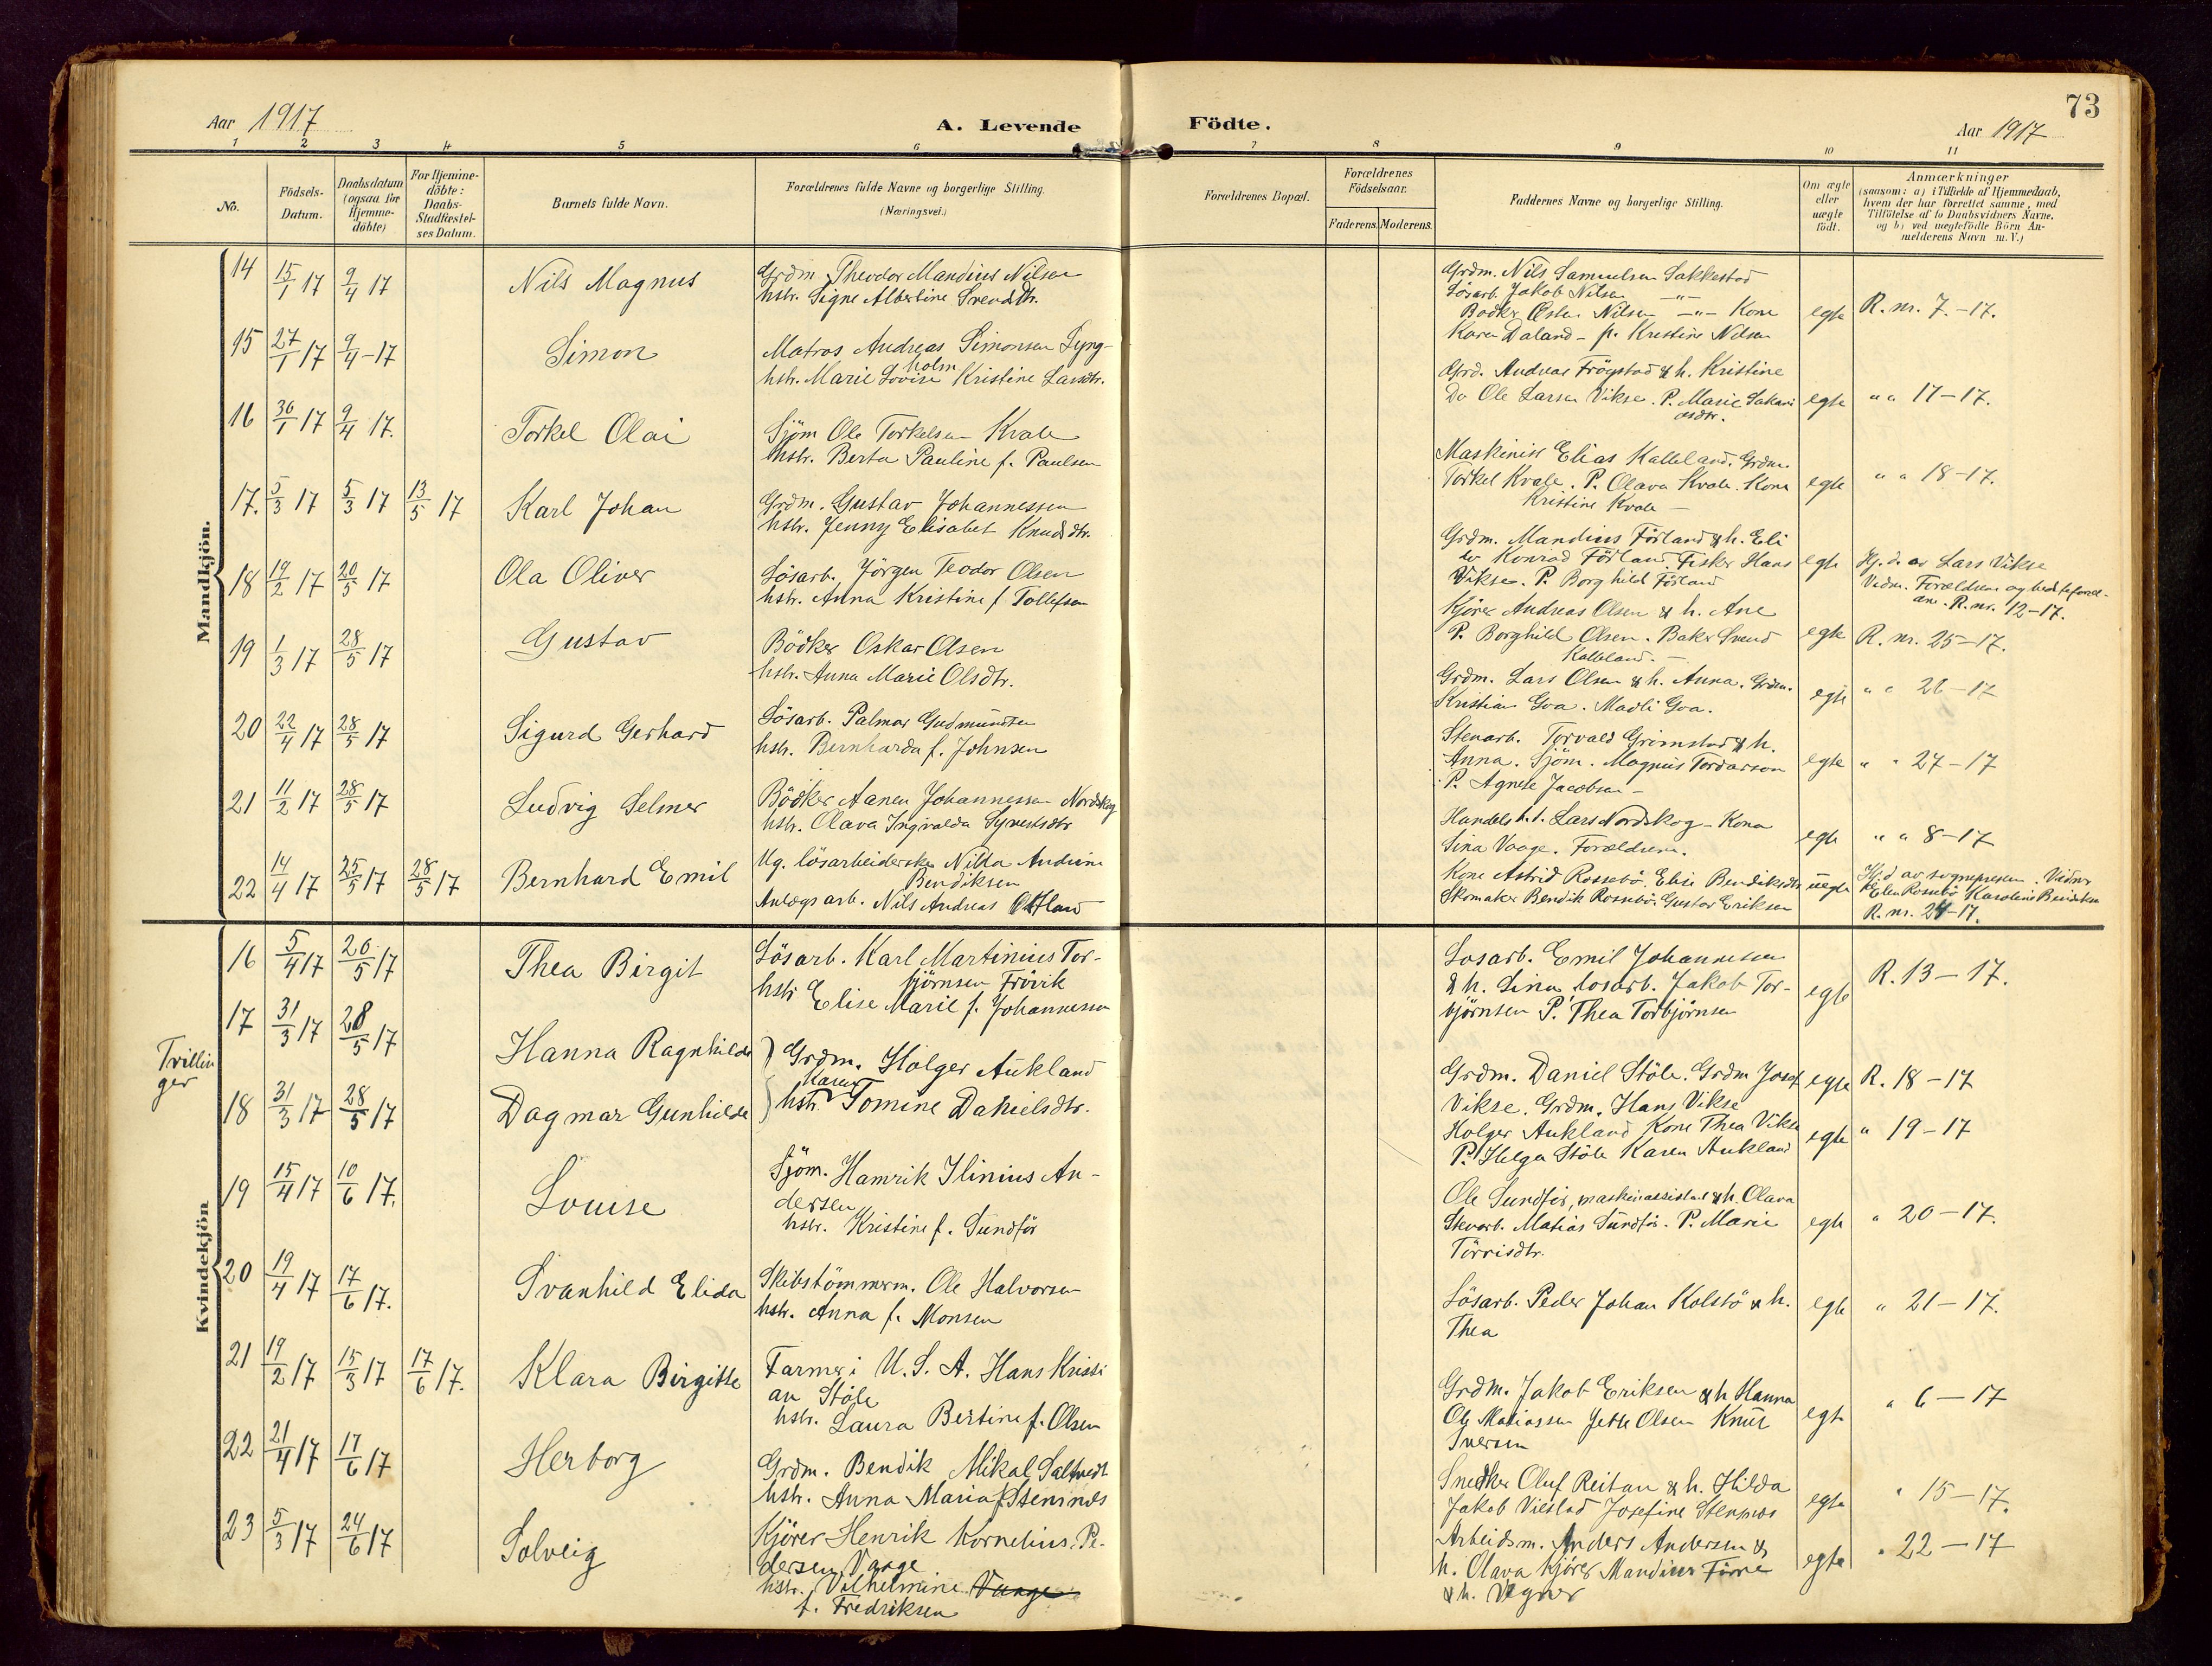 Aar 1917
A. Levende
Födte.
73
Aar 1917
1 2 3 4 5 6 7 8 9 10 11
No.
Födsels-
Datum.
Daabsdatum
(ogsaa for
Hjemme-
döbte)
For Hjemme-
döbte:
Daabs-
Stadfæstel-
ses Datum.
Barnets fulde Navn.
Forældrenes fulde Navne og borgerlige Stilling.
(Næringsvei.)
Forældrenes Bopæl.
Forældrenes
Födselsaar.
Faderens. Moderens.
Faddernes Navne og borgerlige Stilling.
Om ægte
eller
uægte
födt.
Anmærkninger
(saasom: a) i Tilfælde af Hjemmedaab,
hvem der har forrettet samme, med
Tilföielse af to Daabsvidners Navne.
og b) ved uegtefödte Börn An-
melderens Navn m. V.)
Mandkjön.
14 15/1 17 9/4 17 Nils Magnus
Grdm. Theodor Mandius Nilsen
hstr. Signe Albertine Svendsdtr.
Grdm. Nils Samuelsen Sakkestad
Lösarb. Jakob Nilsen —"—
Bödker Østen Nilsen —"— Kone
Karen Daland - p. Kristine Nilsen
egte R. nr. 7.-17.
15 27/1 17 9/4-17 Simon
Matros Andreas Simonsen Lyng-
holm
hstr. Marie Lovise Kristine Larsdtr.
Grd. Andreas Frögstad & h. Kristine
Do Ole Larsen Vikse. P. Marie Sakari
asdtr.
egte " " 17-17.
16 30/1 17 9/4 17. Torkel Olai
Sjöm Ole Torkelsen Kvale
hstr. Berta Pauline f. Paulsen
Maskinist Elias Kalleland. Grdm.
Torkel Kvale. P. Olava Kvale. Kone
Kristine Kvale —
egte " " 18-17.
17. 5/3 17 5/3 17 13/5 17 Karl Johan
Grdm. Gustav Johannessen
hstr. Jenny Elisabet Knudsdtr.
Grdm. Mandius Förland & h. Eli
Konrad Förland. Fisker Hans
Vikse. P. Borghild Förland
egte Hj. d. av Lars Vikse
Vidn. Forældrene og bedsteforel-
drene. R. nr. 12-17.
18 19/2 17 20/5 17 Ola Oliver
Lösarb. Jörgen Teodor Olsen
hstr. Anna Kristine f Tollefsen
Kjörer Andreas Olsen & h. Ane
P. Borghild Olsen. Baker Svend
Kalleland. —
egte R. nr. 25-17.
19 1/3 17 28/5 17 Gustav
Bödker Oskar Olsen
hstr. Anna Marie Olsdtr.
Grdm. Lars Olsen & h. Anna. Grdm.
Kristian Goa. Madli Goa.
egte " " 26-17
20 22/4 17 28/5 17 Sigurd Gerhard
Lösarb. Palmar Gudmundsen
hstr. Bernharda f. Johnsen
Stenarb. Torvald Grimstad & h.
Anna. Sjöm. Magnus Tordarson
P. Agnete Jacobsen —
egte " " 27-17
21 11/2 17 28/5 17 Ludvig Selmer
Bödker Aanen Johannessen Nordskog
hstr. Olava Ingvalda Syvertsdtr
Handelsb.t. Lars Nordskog - Kona
Sina Vaage. Forældrene.
egte " " 8-17
22 14/4 17 25/5 17 28/5 17 Bernhard Emil
Ug. lösarbeiderske Nilda Andrine
Bendiksen
Anlægsarb. Nils Andreas Østland
Kone Astrid Rossebö. Elise Bendiksdtr
Skomaker Bendik Rossebö. Gustav Eriksen
uegte Hj.d av sogneprest. Vidner
Elen Rossebö Karoline Bendiksen
R. nr. 24-17.
Kvindekjön
16 5/4 17 20/5 17 Thea Birgit
Lösarb. Karl Martinius Tor-
björnsen Frövik
hstr Elise Marie f. Johannessen
Lösarb. Emil Johannessen
& h. Lina, lösarb. Jakob Tor-
björnsen P. Thea Torbjörnsen
egte R. 13-17.
Trillin
ger
17 31/3 17 28/5 17 Hanna Ragnhilda
18 31/3 17 28/5 17 Dagmar Gunhilda
Grdm. Holger Aukland
Karen
hstr. Tomine Danielsdtr.
Grdm. Daniel Stöle. Grdm Josef
Vikse. Grdm. Hans Vikse
egte R. 18-17
Holger Aukland Kone Thea Vikse
P. Helga Stöle Karen Aukland
egte " 19-17
19 15/4 17 10/6 17. Louise
Sjöm. Hamrik Ilinius An-
dersen
hstr. Kristine f. Sundför
Ole Sundför, maskinassistent & h. Olava
Stenarb. Matias Sundför. P. Marie
Törrisdtr.
egte " 20-17.
20 19/4 17 17/6 17. Svanhild Elida
Skibstömmerm. Ole Halvorsen
hstr. Anna f. Monsen
Lösarb. Peder Johan Kolstö & h.
Thea
egte " 21-17.
21 19/2 17 15/3 17 17/6 17. Klara Birgitte
Farmer i U.S.A. Hans Kristi
an Stöle
hstr. Laura Bertine f. Olsen
Grdm. Jakob Eriksen & h Hanna
Ole Matiassen Jette Olsen Knut
Iversen
egte " 6-17
22 21/4 17 17/6 17 Herborg
Grdm. Bendik Mikal Saltvedt
hstr. Anna Maria f Stensnes
Snedker Oluf Reitan & h. Hilda
Jakob Vikstad Josefine Stensnes
egte " 15-17.
23 5/3 17 24/6 17 Solveig
Kjörer Henrik Kornelius Pe-
dersen Vaage
hstr. Vilhelmine Vaage
f. Fredriksen
Arbeidsm. Anders Andersen &
h. Olava Kjörer Mandius Förre
& h. Vegner
egte " 22-17